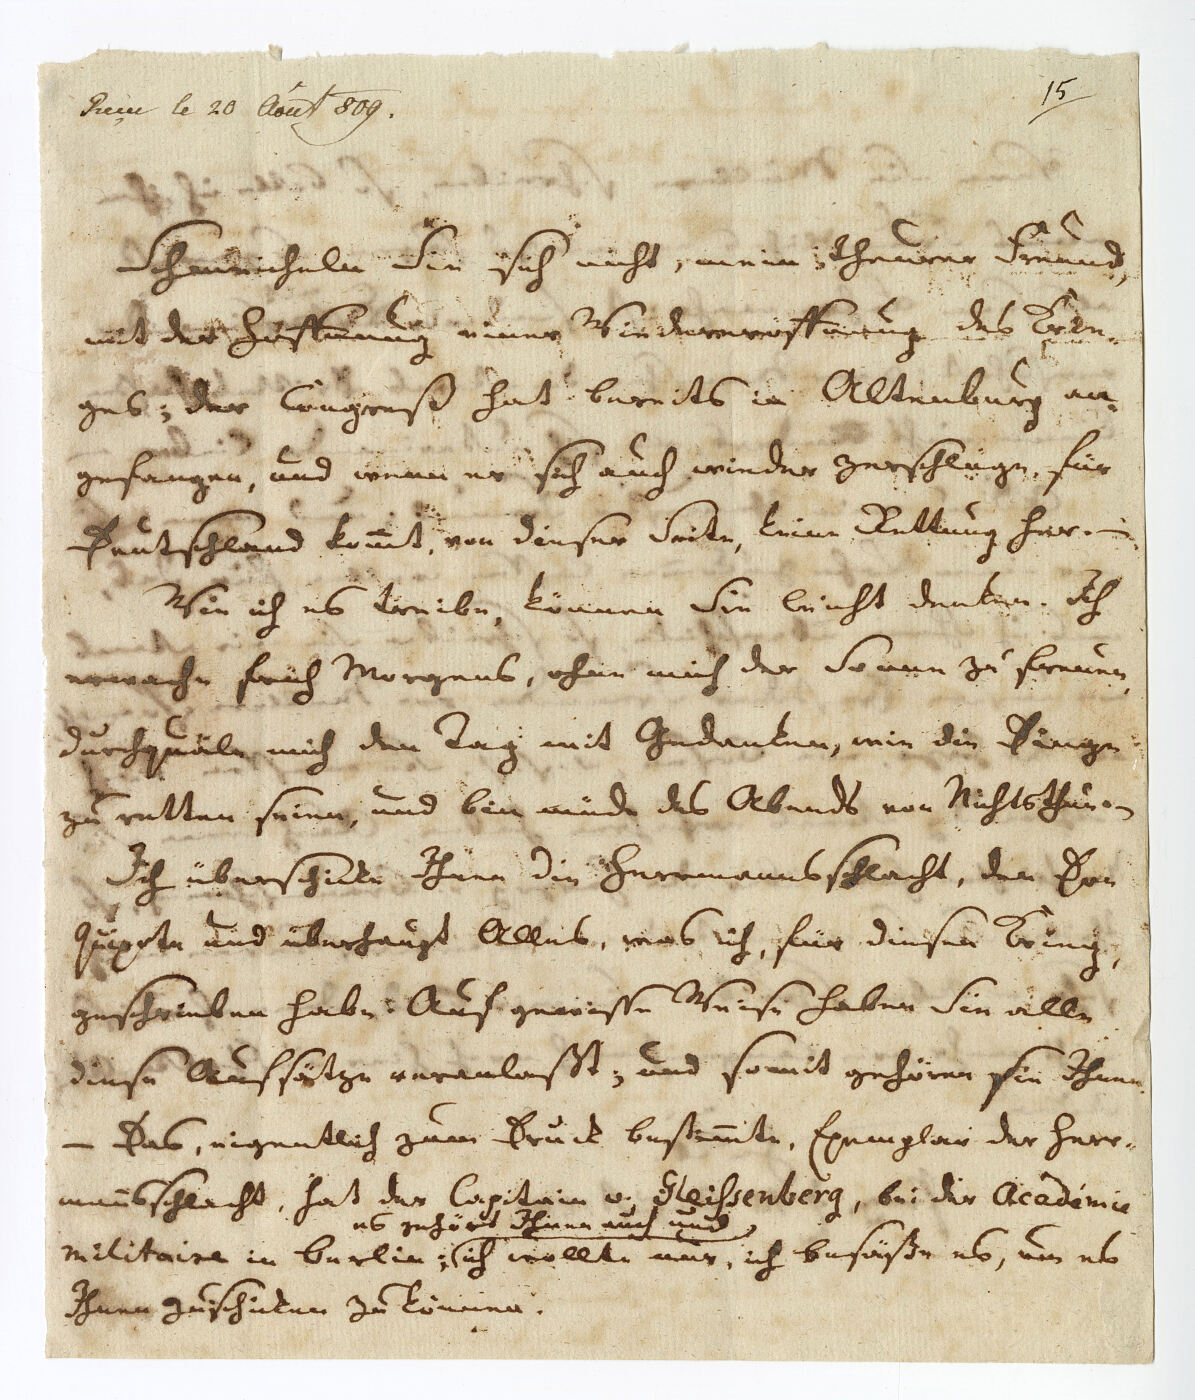 le 20 Aôut 809.
15
Schmeicheln Sie sich nicht, mein theurer Freund,
mit der Hoffnung einer Wiedereröffnung des Krie-
ges; der Congreß hat bereits in Altenburg an-
gefangen, und wenn er sich auch wieder zerschlüge, für
Deutschland kom̄t, von dieser Seite, keine Rettung her. —
Wie ich es treibe, können Sie leicht denken. Ich
erwache früh Morgens, ohne mich der Sonne zu freuen,
durchquäle mich den Tag mit Gedanken, wie die Dinge
zu retten seien, und bin müde des Abends von Nichtsthun. —
Ich überschicke Ihnen die Herrmannsschlacht, den Don
Quixote und überhaupt Alles, was ich, für diesen Krieg,
geschrieben habe. Auf gewisse Weise haben Sie alle
diese Aufsätze veranlaßt; und somit gehören sie Ihnen.
— Das, eigentlich zum Druck bestim̄te, Exemplar der Herr-
mannsschlacht, hat der Capitain v. Gleissenberg, bei der Académie
es gehört Ihnen auch und
militaire in Berlin; ich wollte nur, ich besäße es, um es
Ihnen zuschicken zu können.